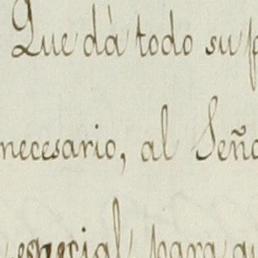 Que dà todo su p
necesario, al Seño
especial para qu